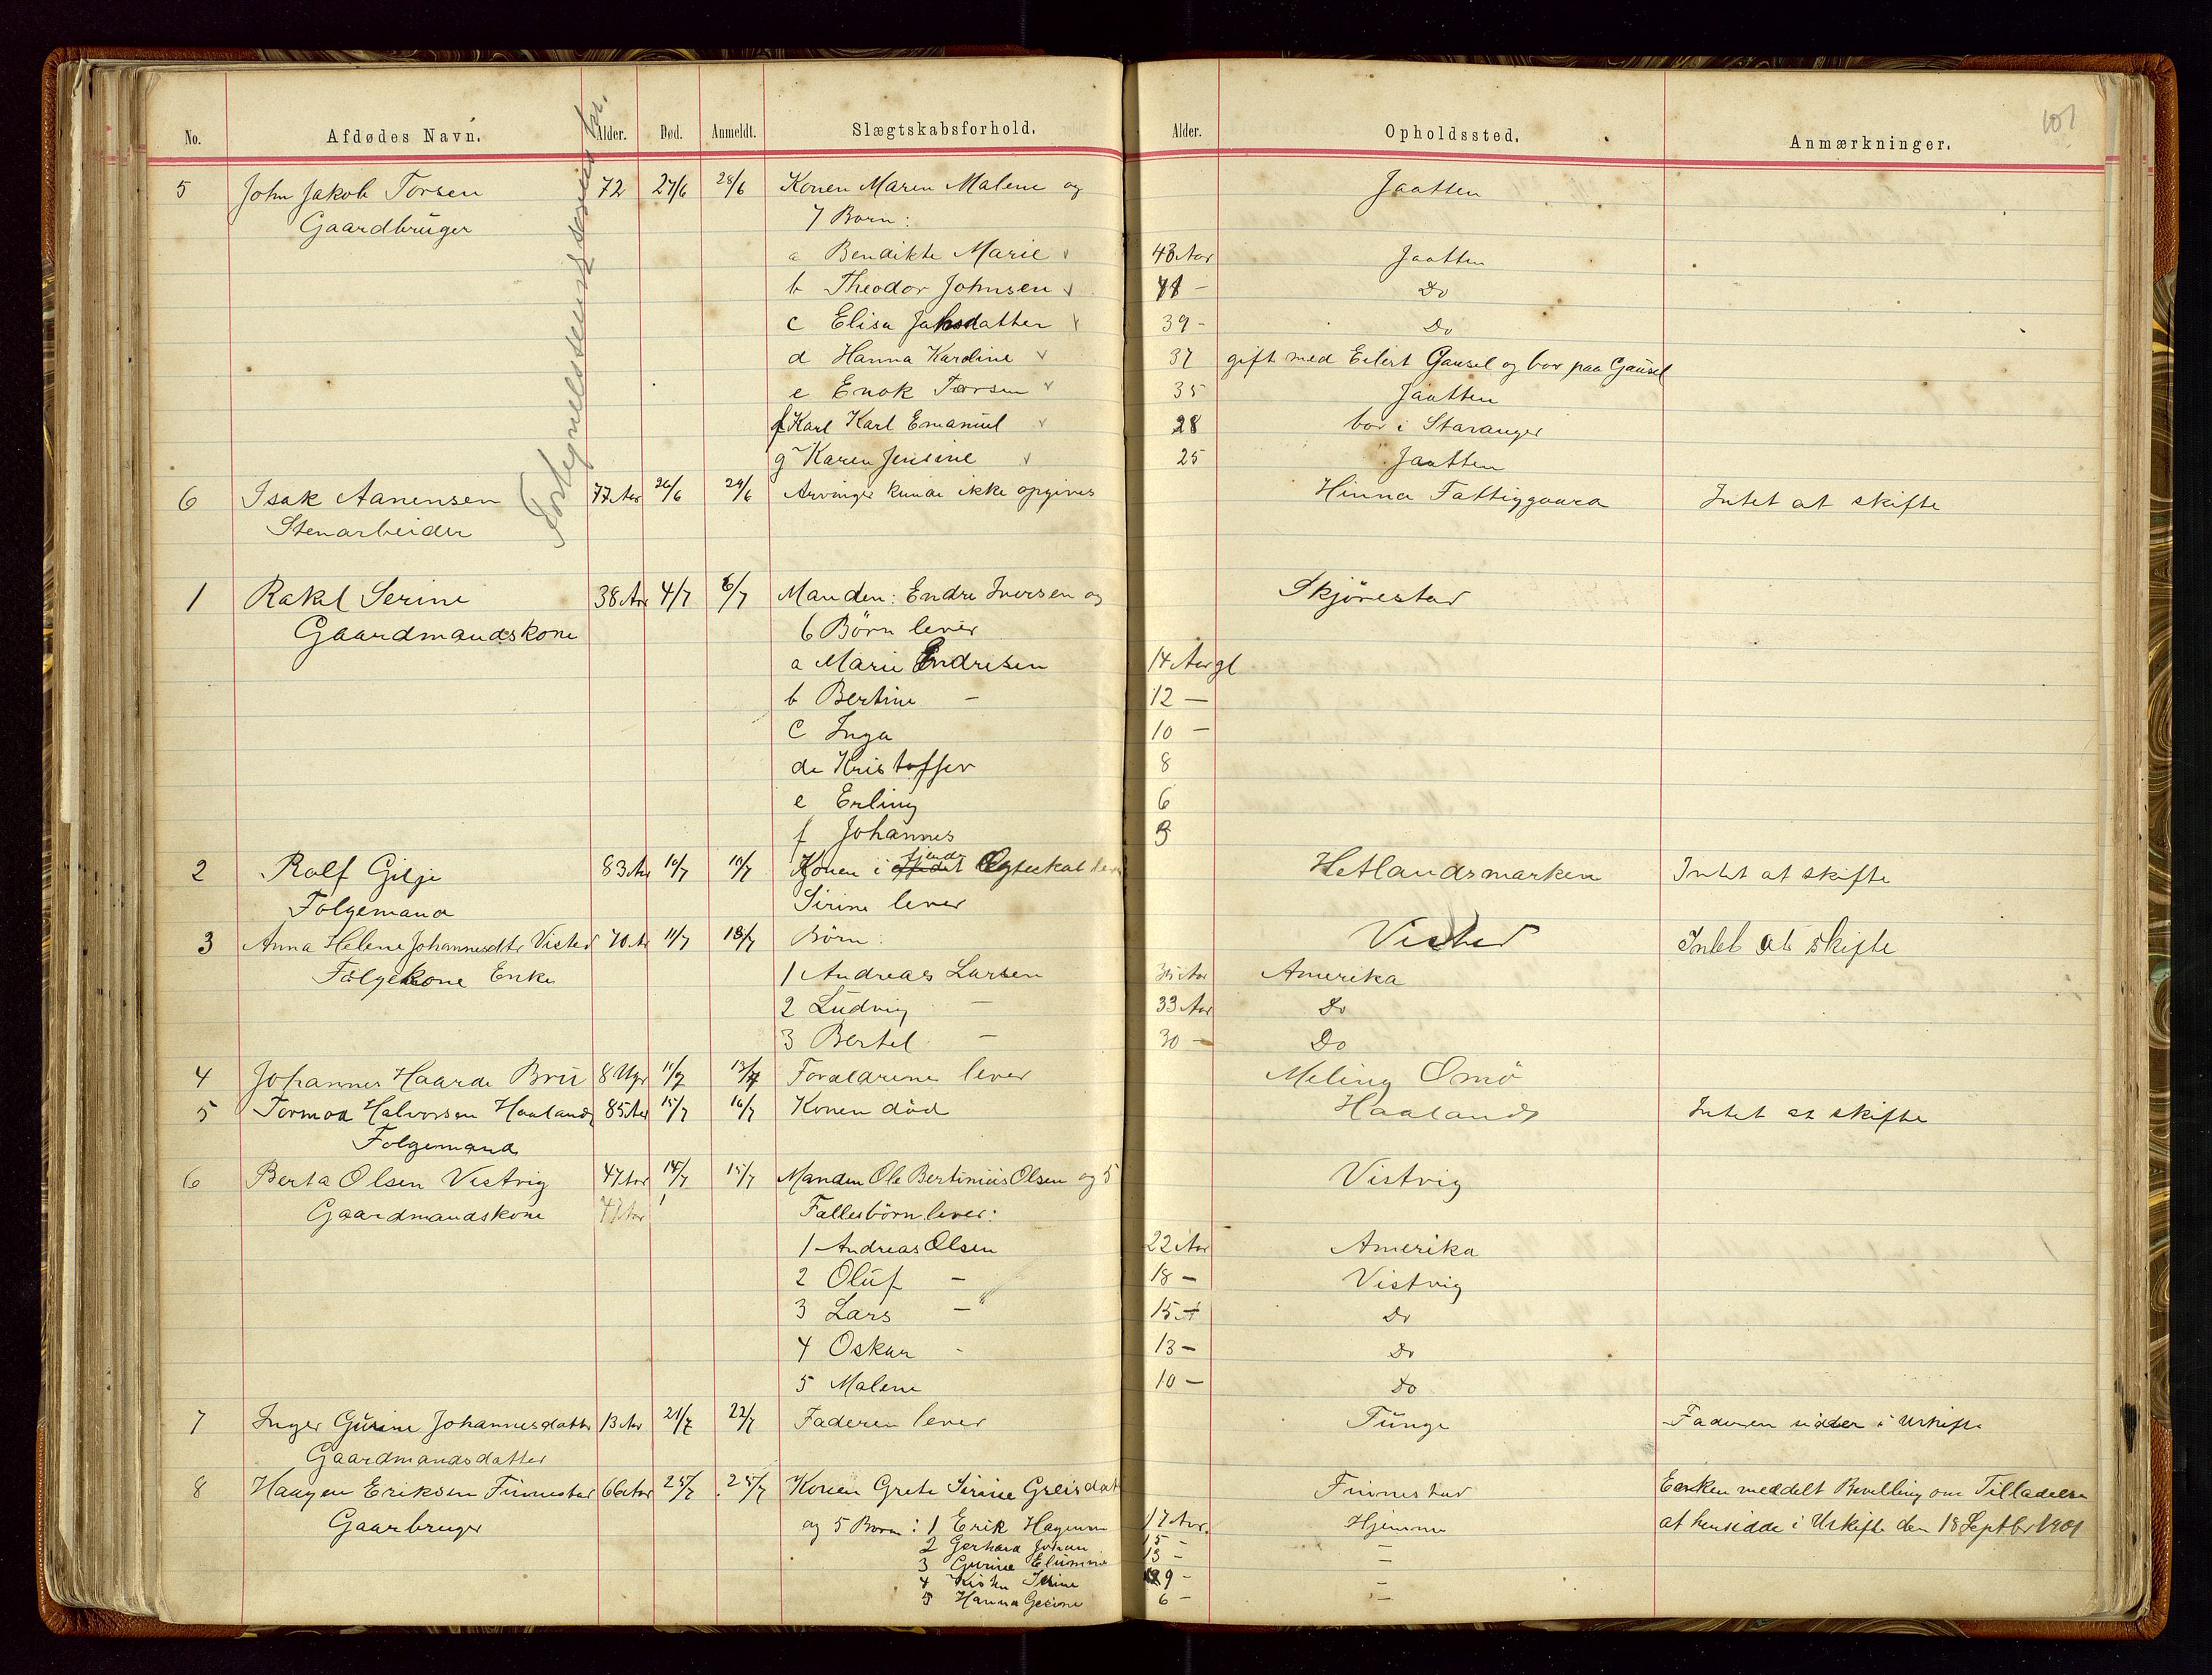 101
No. Afdødes Navn. Alder. Død. Anmeldt. Slægtskabsforhold. Alder. Opholdssted. Anmærkninger.
5 John Jakob Torsen 72 27/6 28/6 Konen Maren Malene og Jaatten
Gaardbruger 7 Born:
a Bendikte Marie v 43 Aar Jaatten
b Theodor Johnsen v 41 - Do
c Elisa Johsdatter v 39 - Do
d Hanna Karoline v 37 gift med Eilert Gausel og bor paa Gausel
e Enok Torsen v 35 Jaatten
f Karl Karl Emanuel v 28 bor i Stavanger
g Karen Jensine v 25 Jaatten
6 Isak Aanensen 77 Aar 26/6 29/6 Arvinger kunde ikke opgives Hinna Fattiggaard Intet at skifte
Stenarbeider
1 Rakel Serine 38 Aar 4/7 6/7 Manden: Endre Iversen og Skjørestad
Gaardmandskone 6 Børn lever
a Marie Endresen 14 Aar gl
b Bertine - 12 -
c Inga 10 -
d Kristoffer 8
e Erling 6
f Johannes 3
2 Rolf Gilje 83 Aar 10/7 10/7 Konen i fjerde Ægteskab Hetlandsmarken Intet at skifte
Folgemand Sirine lever
3 Anna Helene Johannesdtr Visted 70 Aar 11/7 13/7 Børn: Visted Intet at skifte
Folgekone Enke 1 Andreas Larsen 35 Aar Amerika
2 Ludvig - 33 Aar Do
3 Bertel - 30 - Do
4 Johannes Haarde Bru 8 Ugr 11/7 13/7 Foraldrene lever Meling Omö
5 Tormod Halvorsen Haaland 85 Aar 15/7 16/7 Konen död Haaland Intet at skifte
Folgemand
6 Berta Olsen Vestvig 47 Aar 14/7 15/7 Manden Ole Bertinius Olsen og 5 Vistvig
Gaardmandskone 47 Aar Fallesbörn lever:
1 Andreas Olsen 22 Aar Amerika
2 Oluf - 18 - Vistvig
3 Lars - 15 - Do
4 Oskar - 13 - Do
5 Malene 10 - Do
7 Inger Gurine Johannesdatter 13 Aar 21/7 22/7 Faderen lever Tunge Faderen sidder i Uskifte
Gaardmandsdatter
8 Haagen Eriksen Finnestad 66 Aar 25/7 25/7 Konen Grete Sirine Greisdat Finnestad Enken meddelt Bevilling om Tilladelse
Gaarbruger og 5 Born: 1 Erik Hagenm 17 Aar. Hjemme at hensidde i Uskifte den 18 Septbr 1901
2 Gerhard Johan 15 - -
3 Gurine 13 - -
4 Serine 9 - -
5 Hanna 6 - -